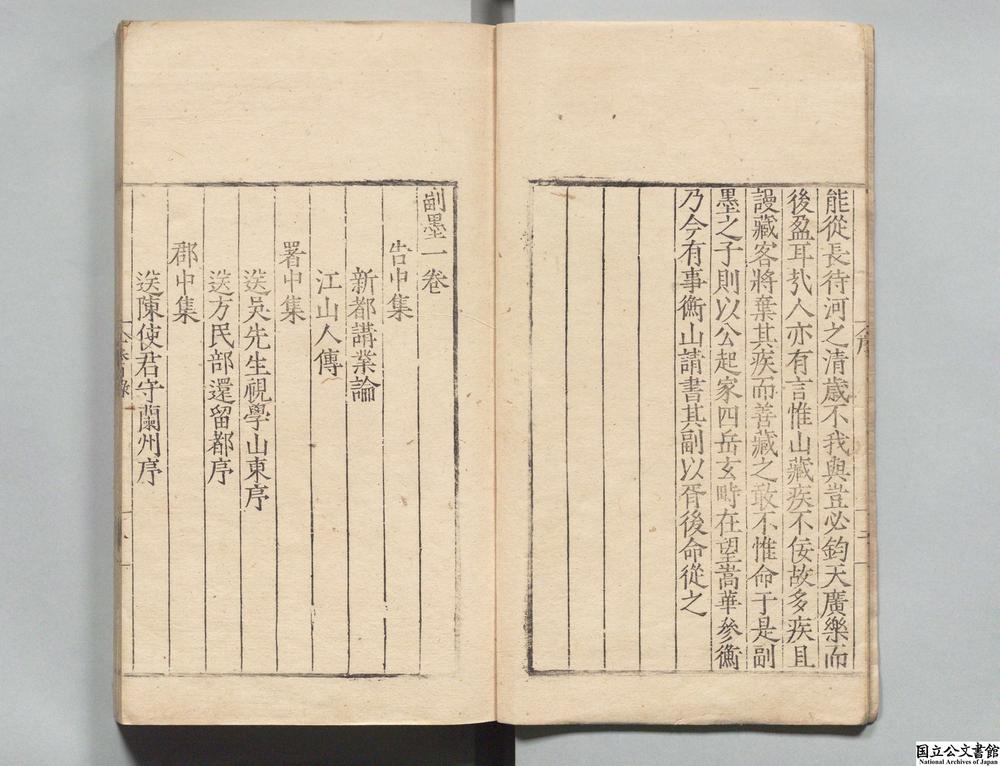 能從長待河之清歲不我與豈必鈞天廣樂而
後盈耳㢤人亦有言惟山藏疾不佞故多疾且
謾藏客將棄其疾而善藏之敢不惟命于是副
墨之子則以公起家四岳玄畤在望嵩華參衡
乃今有事衡山請書其副以胥後命從之
副墨一卷
告中集
新都講業論
江山人傳
署中集
送吳先生視學山東序
送方民部還留都序
郡中集
送陳使君守蘭州序
国立公文書館
National Archives of Japan